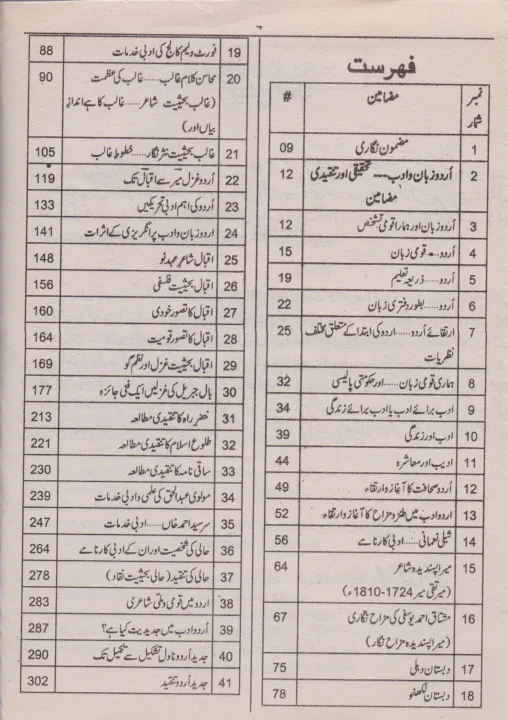 فہرست
نمبر شمار	مضامین	#
1	مضمون نگاری	09
2	اُردو زبان و ادب۔۔۔ تحقیقی اور تنقیدی	12
مضامین
3	اُردو زبان اور ہمارا قومی تشخص	12
4	اُردو.....قومی زبان	15
5	اُردو.....ذریعہ تعلیم	19
6	اُردو.....بطور دفتری زبان	22
7	ارتقائے اُردو.....اردو کی ابتدا کے متعلق مختلف	25
نظریات
8	ہماری قومی زبان.....اور حکومتی پالیسی	32
9	ادب برائے ادب یا ادب برائے زندگی	34
10	ادب اور زندگی	39
11	ادیب اور معاشرہ	44
12	اُردو صحافت کا آغاز و ارتقاء	49
13	اردو ادب میں طنز و مزاح کا آغاز و ارتقاء	52
14	شبلی نعمانی.....ادبی کارنامے	56
15	میرا پسندیدہ شاعر	64
(میر تقی میر 1724-1810ء)
16	مشتاق احمد یوسفی کی مزاح نگاری	67
(میرا پسندیدہ مزاح نگار)
17	دبستان دہلی	75
18	دبستان لکھنؤ	78
19	فورٹ ولیم کالج کی ادبی خدمات	88
20	محاسن کلام غالب.....غالب کی عظمت	90
(غالب بحیثیت شاعر.....غالب کا ہے انداز
بیاں اور)
21	غالب بحیثیت نثر نگار.....خطوط غالب	105
22	اُردو غزل میر سے اقبال تک	119
23	اُردو کی اہم ادبی تحریکیں	133
24	اردو زبان و ادب پر انگریزی کے اثرات	141
25	اقبال شاعر عہد نو	148
26	اقبال بحیثیت فلسفی	156
27	اقبال کا تصور خودی	160
28	اقبال کا تصور قومیت	164
29	اقبال بحیثیت غزل اور نظم گو	169
30	بال جبریل کی غزلیں ایک فنی جائزہ	177
31	خضر راہ کا تنقیدی مطالعہ	213
32	طلوع اسلام کا تنقیدی مطالعہ	221
33	ساقی نامہ کا تنقیدی مطالعہ	230
34	مولوی عبدالحق کی علمی و ادبی خدمات	239
35	سرسید احمد خاں.....ادبی خدمات	247
36	حالی کی شخصیت اور ان کے ادبی کارنامے	264
37	حالی کی تنقید (حالی بحیثیت نقاد)	278
38	اردو میں قومی و ملی شاعری	283
39	اُردو ادب میں جدیدیت کیا ہے؟	287
40	جدید اُردو ناول تشکیل سے تکمیل تک	290
41	جدید اُردو تنقید	302